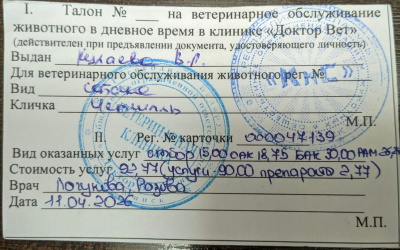 I. Талон № __ на ветеринарное обслуживание
животного в дневное время в клинике «Доктор Вет»
(действителен при предъявлении документа, удостоверяющего личность)
Выдан В.Г.
Для ветеринарного обслуживания животного рег. №
Вид собака
Кличка
М.П.
II. Рег. № карточки 000047139
Вид оказанных услуг 15,00 ОАК 18,75 БАК 30,00
Стоимость услуг 92,77 (услуги - 90,00 препараты 2,77)
Врач Логунова,
Дата 11.04.2026
М.П.